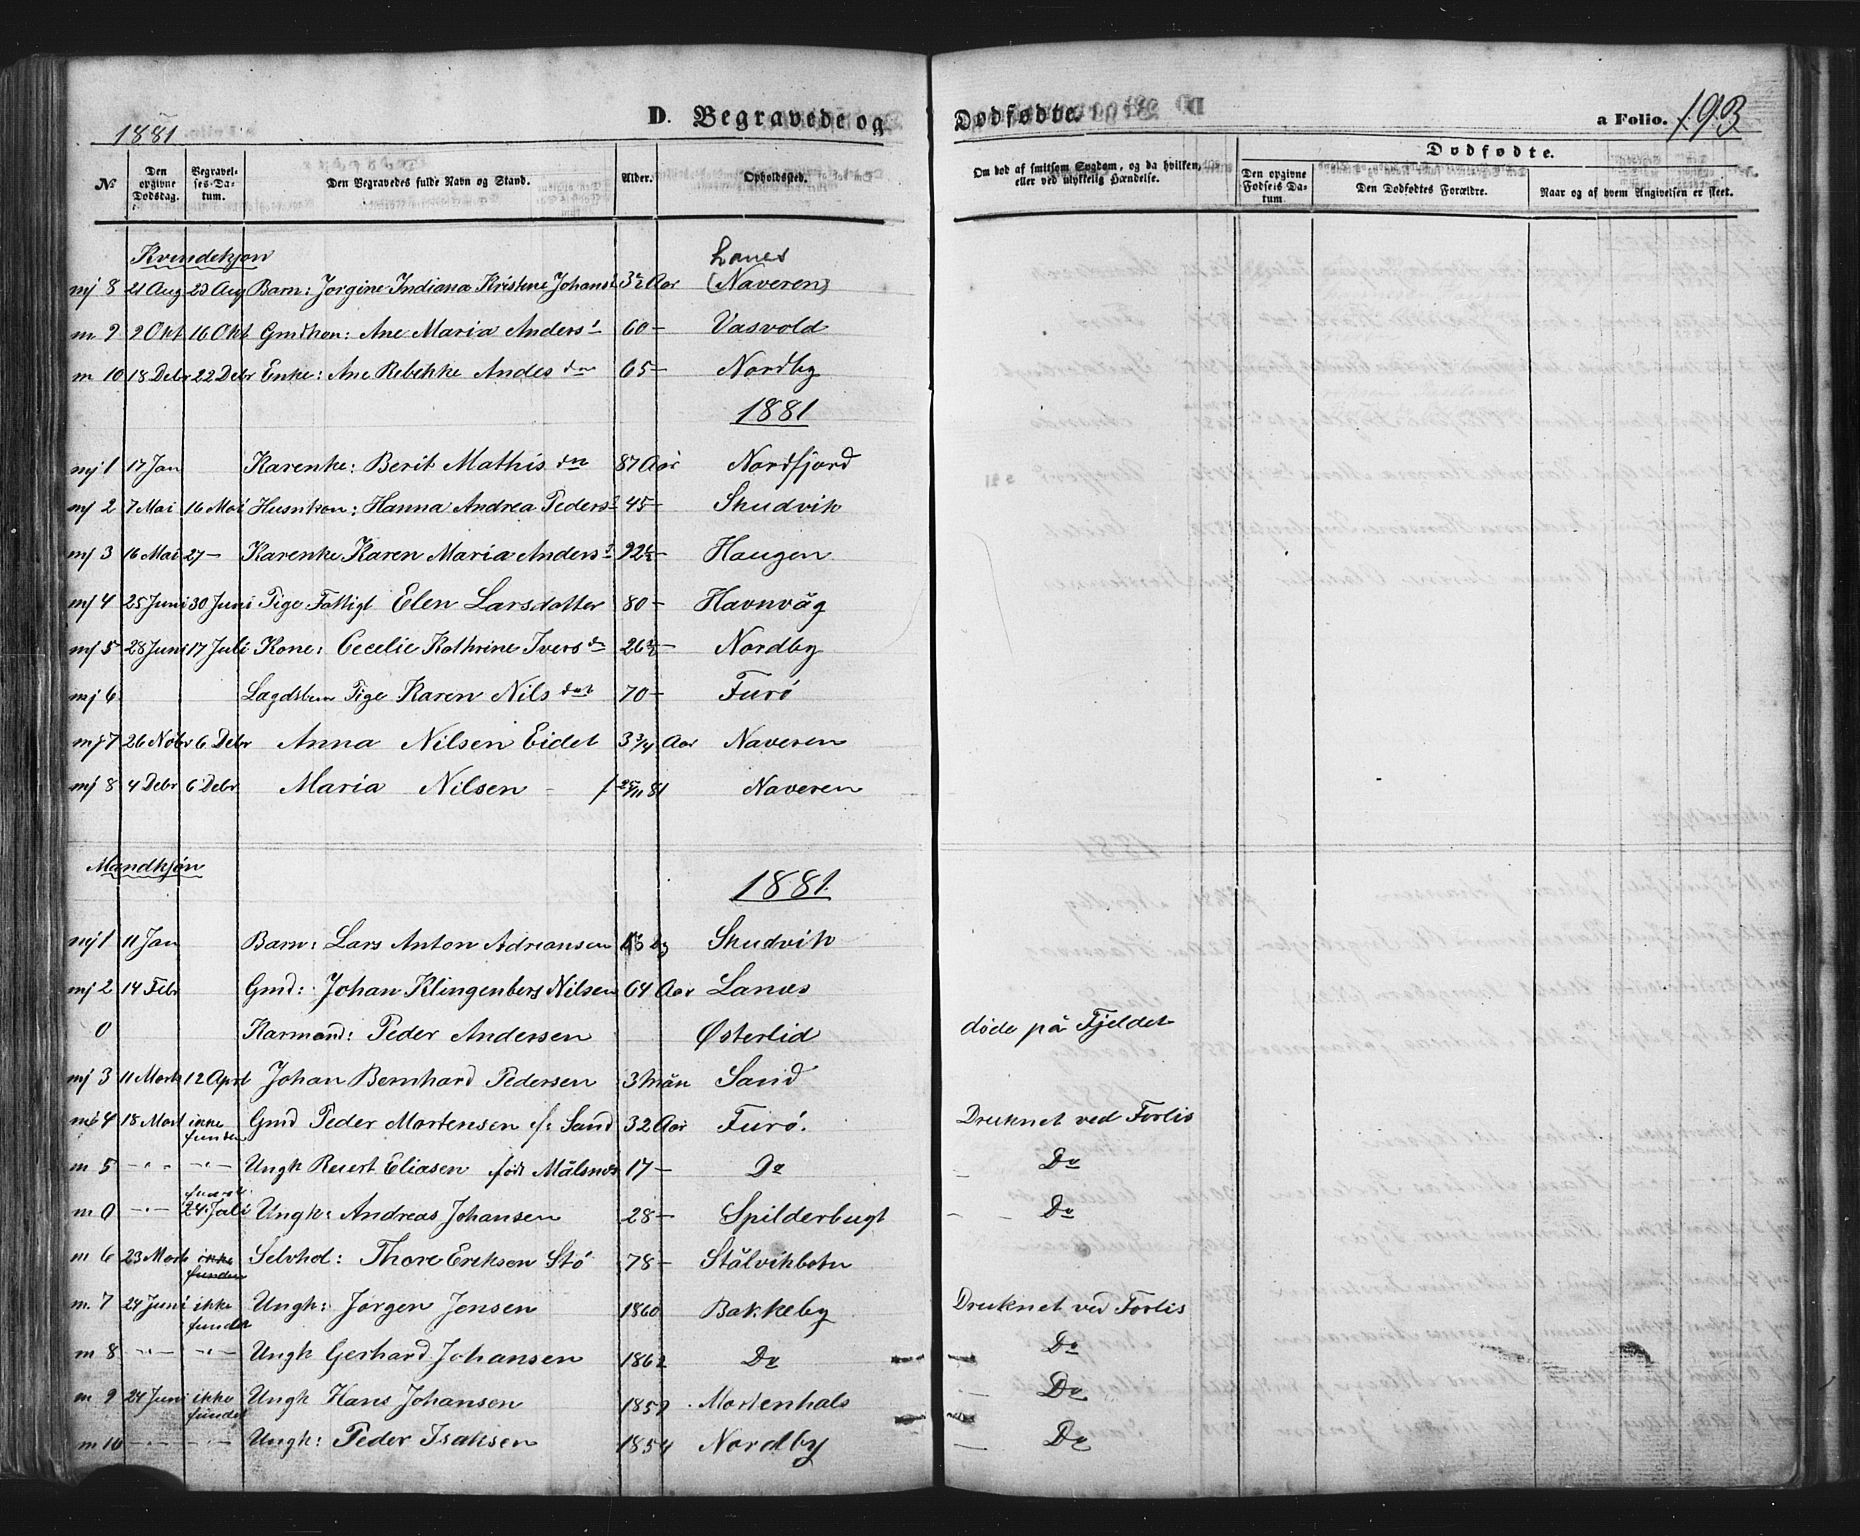 1881
D. Begravede og Dødfødte.
a Folio. 193
№ Den opgivne Dødsdag. Begravelses-Datum. Den Begravedes fulde Navn og Stand. Alder. Opholdssted. Om død af smitsom Sygdom, og da hvilken, eller ved ulykkelig Hændelse. Dødfødte. Den opgivne Fødsels Datum. Den Dødfødtes Forældre. Naar og af hvem Angivelsen er skeet.
Kvindekjøn Lanes
mj 8 21 Aug 23 Aug Barn: Jørgine Indiana Kristine Johans 3½ Aar (Naveren)
m 9 9 Okt 16 Okt Gmdkon: Ane Maria Anders 60 – Vasvold
m 10 18 Debr 22 Debr Enke: Ane Rebekke Andes dr 65 – Nordby
1881
mj 1 17 Jan Karenke: Berit Mathis dr 87 Aar Nordfjord
mj 2 7 Mai 16 Mai Husmkon: Hanna Andrea Peders 45 – Skudvik
mj 3 16 Mai 27 – Karenke Karen Maria Anders 92½ – Haugen
mj 4 25 Juni 30 Juni Pige Fattigl Elen Larsdatter 80 – Havnvåg
mj 5 28 Juni 17 Juli Kone: Cecelie Kathrine Ivers dr 26 – Nordby
mj 6 Lægdslem Pige Karen Nils dat 70 – Furø
mj 7 26 Nobr 6 Debr Anna Nilsen Eidet 3 3/4 Aar Naveren
mj 8 4 Debr 6 Debr Maria Nilsen – f 25/11 81 Naveren
Mandkjøn
1881.
mj 1 11 Jan Barn: Lars Anton Adriansen Dg Skudvik
mj 2 14 Febr Gmd: Johan Klingenberg Nilsen 64 Aar Lanæs
0 Karmand: Peder Andersen Østerlid døde på Fjeldet
mj 3 11 Marts 12 April Johan Bernhard Pedersen 3 Mån Sand
mj 4 18 Mart ikke funden Gmd Peder Mortensen f: Sand 32 Aar Furø. Druknet ved Forlis
m 5 – " – – " – Ungk Reiert Eliasen født Målsnes 17 – Do – Do
m 0 – " – funden 24 Juli Ungk: Andreas Johansen 28 – Spilderbugt – – Do
m 6 23 Marts ikke funden Selvhol: Thore Eriksen Stø 78 – Stålvikbotn
m. 7 24 Juni ikke fundet Ungk: Jørgen Jensen 1860 Bakkeby Druknet ved Forlis
m 8 – " – – " – Ungk Gerhard Johansen 1862 Do – Do
m 9 24 Juni ikke fundet Ungk Hans Johansen 1859 Mortenhals – Do
m 10 – " – – " – Ungk: Peder Isaksen 1854 Nordby – Do